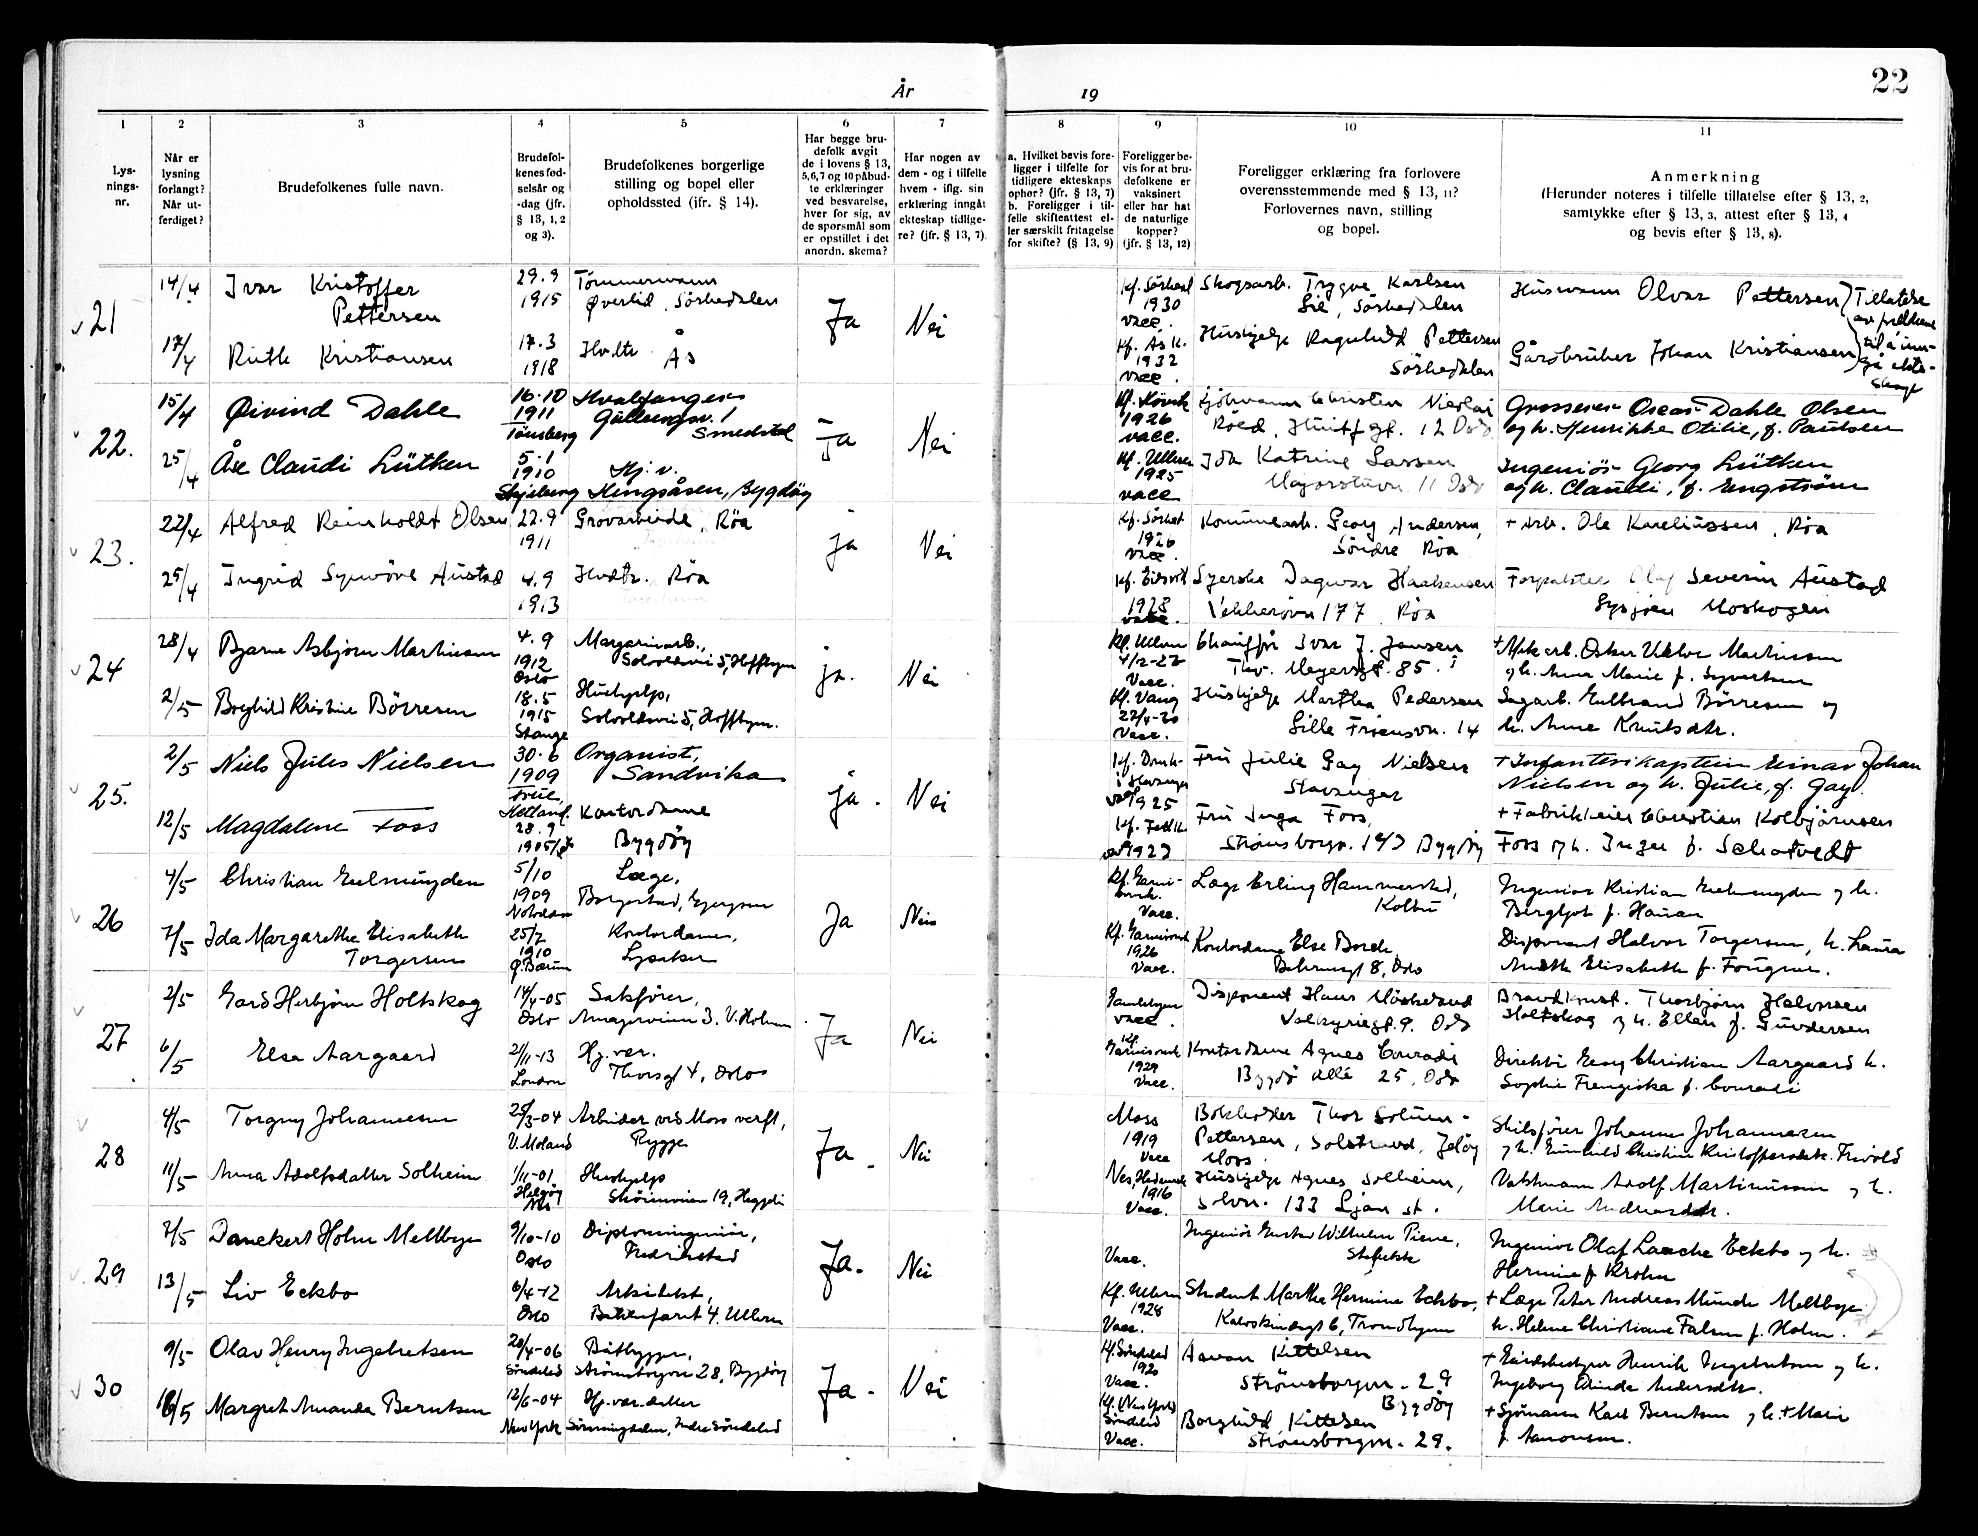 22
År
19
1
2
3
4
5
6
7
8
9
10
11
Lys-
nings-
nr.
Når er
lysning
forlangt?
Når ut-
ferdiget?
Brudefolkenes fulle navn.
Brudefol-
kenes fød-
selsår og
-dag (jfr.
§ 13, 1, 2
og 3).
Brudefolkenes borgerlige
stilling og bopel eller
opholdssted (jfr. § 14).
Har begge bru-
defolk avgit
de i lovens § 13,
5, 6, 7 og 10 påbud-
te erklæringer
ved besvarelse,
hver for sig, av
de spørsmål som
er opstillet i det
anordn. skema?
Har nogen av
dem - og i tilfelle
hvem - iflg. sin
erklæring inngåt
ekteskap tidlige-
re? (jfr. § 13, 7).
a. Hvilket bevis fore-
ligger i tilfelle for
tidligere ekteskaps
ophør? (jfr. § 13, 7)
b. Foreligger i til-
felle skifteattest el-
ler særskilt fritagelse
for skifte? (§ 13, 9)
Foreligger be-
vis for at bru-
defolkene er
vaksinert
eller har hat
de naturlige
kopper?
(jfr. § 13, 12)
Foreligger erklæring fra forlovere
overensstemmende med § 13, 11?
Forlovernes navn, stilling
og bopel.
Anmerkning
(Herunder noteres i tilfelle tillatelse efter § 13, 2,
samtykke efter § 13, 3, attest efter § 13, 4
og bevis efter § 13, 8).
21
14/4
Ivar Kristoffer
Pettersen
29.9
1915
Tømmermann
Øverlid, Sörkedalen
Ja
Nei
1930
vacc.
Skogsarb. Trygve Karlsen
Lie, Sörkedalen
Husmann Olvar Pettersen
Tillatelse
17/4
Ruth Kristiansen
17.3
1918
Hvdtr. Ås
Kf. Ås k.
1932
vacc.
Hushjelp Ragnhild Pettersen
Sörkedalen
Gårdbruker Johan Kristiansen
22.
15/4
Øivind Dahle
16.10
1911
Tønsberg
Hvalfanger
Smedstad
Ja
Nei
1926
vacc.
Christen Nicolai
Röed, Huitf.gt. 12 Oslo
Grosserer Oscar Dahle Olsen
og h. Henrikke Otilie, f. Paulsen
25/4
Åse Claudi Lütken
5.1
1910
Skjeberg
Hj. v.
Kongsåsen, Bygdöy
Kf. Ullern
1925
vacc
Ida Katrine Larsen
11 Oslo
Ingeniör Georg Lütken
og h. Claudi, f. Engström
23.
22/4
Alfred Reinholdt Olsen
22.9
1911
Grovarbeide, Röa
ja
Nei
1926
vacc.
Kommunearb. Georg Andersen,
Söndre Röa
+ Arb. Ole Kareliussen, Röa
25/4
Ingrid Synnöve Austad
4.9
1913
Hvdtr. Röa
Kf. Eidsvoll
1928
vacc.
Syerske Dagmar Haakensen
Vækkeröv. 177, Röa
Forpakter Olaf Severin Austad
Moskogen
24
28/4
Bjarne Asbjørn Martinsen
4.9
1912
Oslo
Margarinarb.,
Solvoldsvei 5, Hoffsbyen
ja.
Nei
Kf. Ullern
4/12-27
Vacc.
Chauffør Ivar J. Jensen
Thv. Meyersgt. 85.
h. Anna Marie f. Syvertsen
2/5
Borghild Kristine Börresen
18.5
1915
Stange
Hushjelp,
Solvoldsvei 5, Hoffsbyen.
Kf. Vang
22/6-30
Vacc.
Hushjelp Martha Pedersen
Gille Friensvn. 14
Sagarb. Gulbrand Börresen og
h. Anne Knutsdtr.
25.
2/5
Niels Jules Nielsen
30.6
1909
Organist,
Sandvika
ja.
Nei
i Stavanger
1925
Fru Julie Gay Nielsen
Stavanger
+ Infanterikaptein Einar Johan
Nielsen og h. Julie, f. Gay.
12/5
Magdalene Foss
Hetland
28.9
1905
Kontordame
Bygdöy
1923
Fru Inga Foss,
Strömsborgv. 14 Bygdöy
+ Fabrikkeier Christian Kolbjörnsen
Foss og h. Inger f. Schatvedt
26
4/5
Christian Gulmingden
5/10
1909
Notodden
Læge,
Ja
Nei
Vacc.
Læge Erling Hammerstad,
Kolbu
Ingeniör Kristian
Bergljot f. Hauan
7/5
Ida Margarethe Elisabeth
Torgersen
25/2
1910
Ø. Bærum
Kontordame,
Lysaker
1926
Vacc.
Kontordame Else Borch,
Behrensgt 8, Oslo
Disponent Halvor Torgersen, h. Laura
Elisabeth f. Fougner.
27
2/5
Gard Herbjörn Holtskog
14/4-05
Oslo
Sakfører,
Amagerveien 3. V. Holmen
Ja
Nei
Gamlebyen
vacc.
Disponent Hans
Valkyriegt. 9. Oslo
Brandkonst. Thorbjörn Halvorsen
Holtskog og h. Ellen f. Gundersen
6/5
Elsa Aargaard
21/11-13
London
Hj. vær.
Thorsgt 4, Oslo
Kf.
Garnisonsk
1929
Vacc.
Kontordame Agnes Conradi
Bygdö allé 25, Oslo
Direktör Georg Christian Aargaard h.
Sophie Frengiska f. Conradi
28
4/5
Torgny Johannesen
25/3-04
V. Moland
Arbeider ved Moss verft,
Rygge
Ja.
Nei
Moss
1919
Vacc
Bokholder Thor Solum-
Pettersen, Solstrand, Jelöy
Moss.
Skibsfører Johannes Johannesen
og h. Gunhild Christine Kristoffersdtr. Frivold
11/5
Anna Adolfsdatter Solheim
1/11-01
Helgöy
Nes
Hushjelp
Skömveien 19, Heggeli
Nes, Hedemark
1916
Vacc.
Hushjelp Agnes Solheim,
133 Ljan st.
Valsemann Adolf Martinussen og h.
Marie Andreasdtr.
29
7/5
Danckert Holm Mellbye
9/10-10
Oslo
Diplomingeniör,
Fredrikstad
Ja.
Nei
Vacc.
Ingeniör Gustav Wilhelm Piene,
Stabekk
Ingeniör Olaf Lasche Eckbo og h.
Hermine f. Krohn
13/5
Liv Eckbo
6/4-12
Oslo
Arkitekt,
Bakkefaret 4. Ullern
Kf. Ullern
1928
Vacc.
Student Marthe Hermine Eckbo,
Kalvskindsgt 6, Trondhjem
+ Læge Peter Andreas Munch Mellbye
h. Helene Christiane Falsen f. Holm.
30
9/5
Olav Henry Ingebretsen
20/4-06
Söndeled
Båtbygger,
Strömsborgvn 28, Bygdöy
Ja.
Nei
Kf. Söndeled
1920
Vacc.
Aanon Kittelsen
Strömsborgvn. 29
Bygdöy
+ Henrik Ingebretsen og h.
Ingeborg Andersdtr.
16/5
Margret Amanda Berntsen
12/6-04
New York
Hj. vær. datter
Indre Söndeled
Söndeled
Vacc.
Borghild Kittelsen
Strömsborgvn. 29.
+ Sjömann Karl Berntsen og h. + Marie
f. Aanonsen.